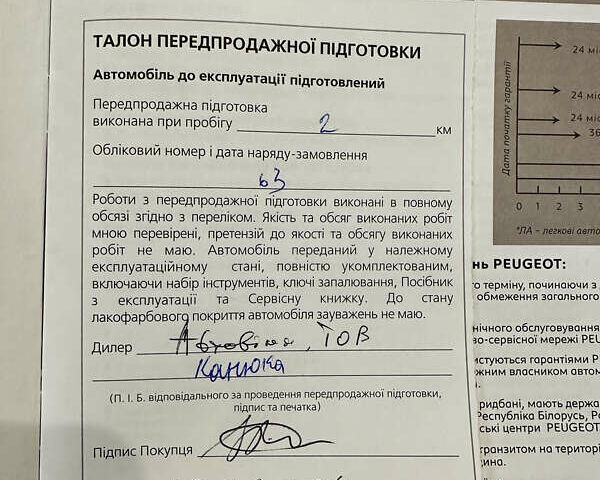 ТАЛОН ПЕРЕДПРОДАЖНОЇ ПІДГОТОВКИ
Автомобіль до експлуатації підготовлений
Передпродажна підготовка
виконана при пробігу 2 км
Обліковий номер і дата наряду-замовлення
63
Роботи з передпродажної підготовки виконані в повному
обсязі згідно з переліком. Якість та обсяг виконаних робіт
мною перевірені, претензій до якості та обсягу виконаних
робіт не маю. Автомобіль переданий у належному
експлуатаційному стані, повністю укомплектованим,
включаючи набір інструментів, ключі запалювання, Посібник
з експлуатації та Сервісну книжку. До стану
лакофарбового покриття автомобіля зауважень не маю.
Дилер ТОВ
Канюка
(П. І. Б. відповідального за проведення передпродажної підготовки,
підпис та печатка)
Підпис Покупця
Дата початку гарантії
24 міс
24 міс
24 міс
36
0 1 2 3
*ЛА – легкові авто
нь PEUGEOT:
о терміну, починаючи з
обмеження загального
нічного обслуговування
зо-сервісної мережі PEU
истуються гарантіями P
жним власником автом
ридбані, мають держа
Республіка Білорусь, Р
ські центри PEUGEOT
транзитом на територі